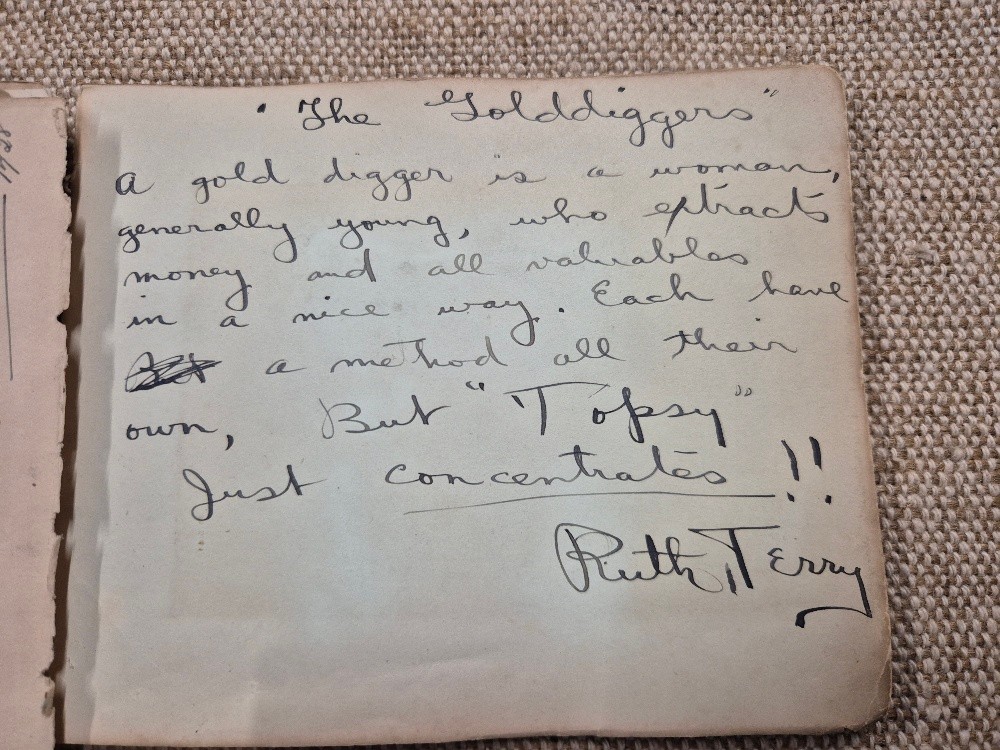 "The Golddiggers"
A gold digger is a woman,
generally young, who extracts
money and all valuables
in a nice way. Each have
a method all their
own, But "Topsy"
Just concentrates!!
Ruth Terry